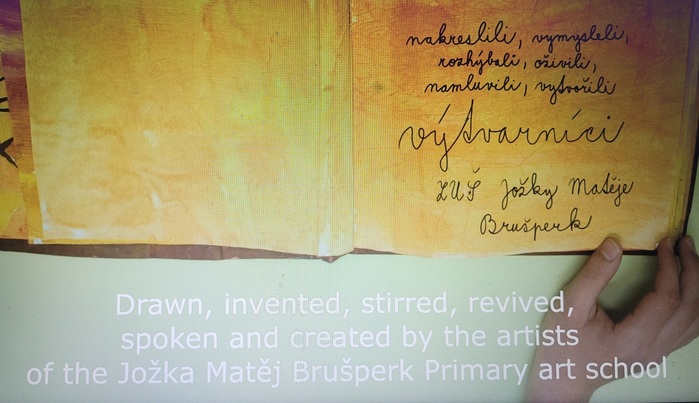 nakreslili, vymysleli,
rozhýbali, oživili,
namluvili, vytvořili
výtvarníci
ZUŠ Jožky Matěje
Brušperk
Drawn, invented, stirred, revived,
spoken and created by the artists
of the Jožka Matěj Brušperk Primary art school